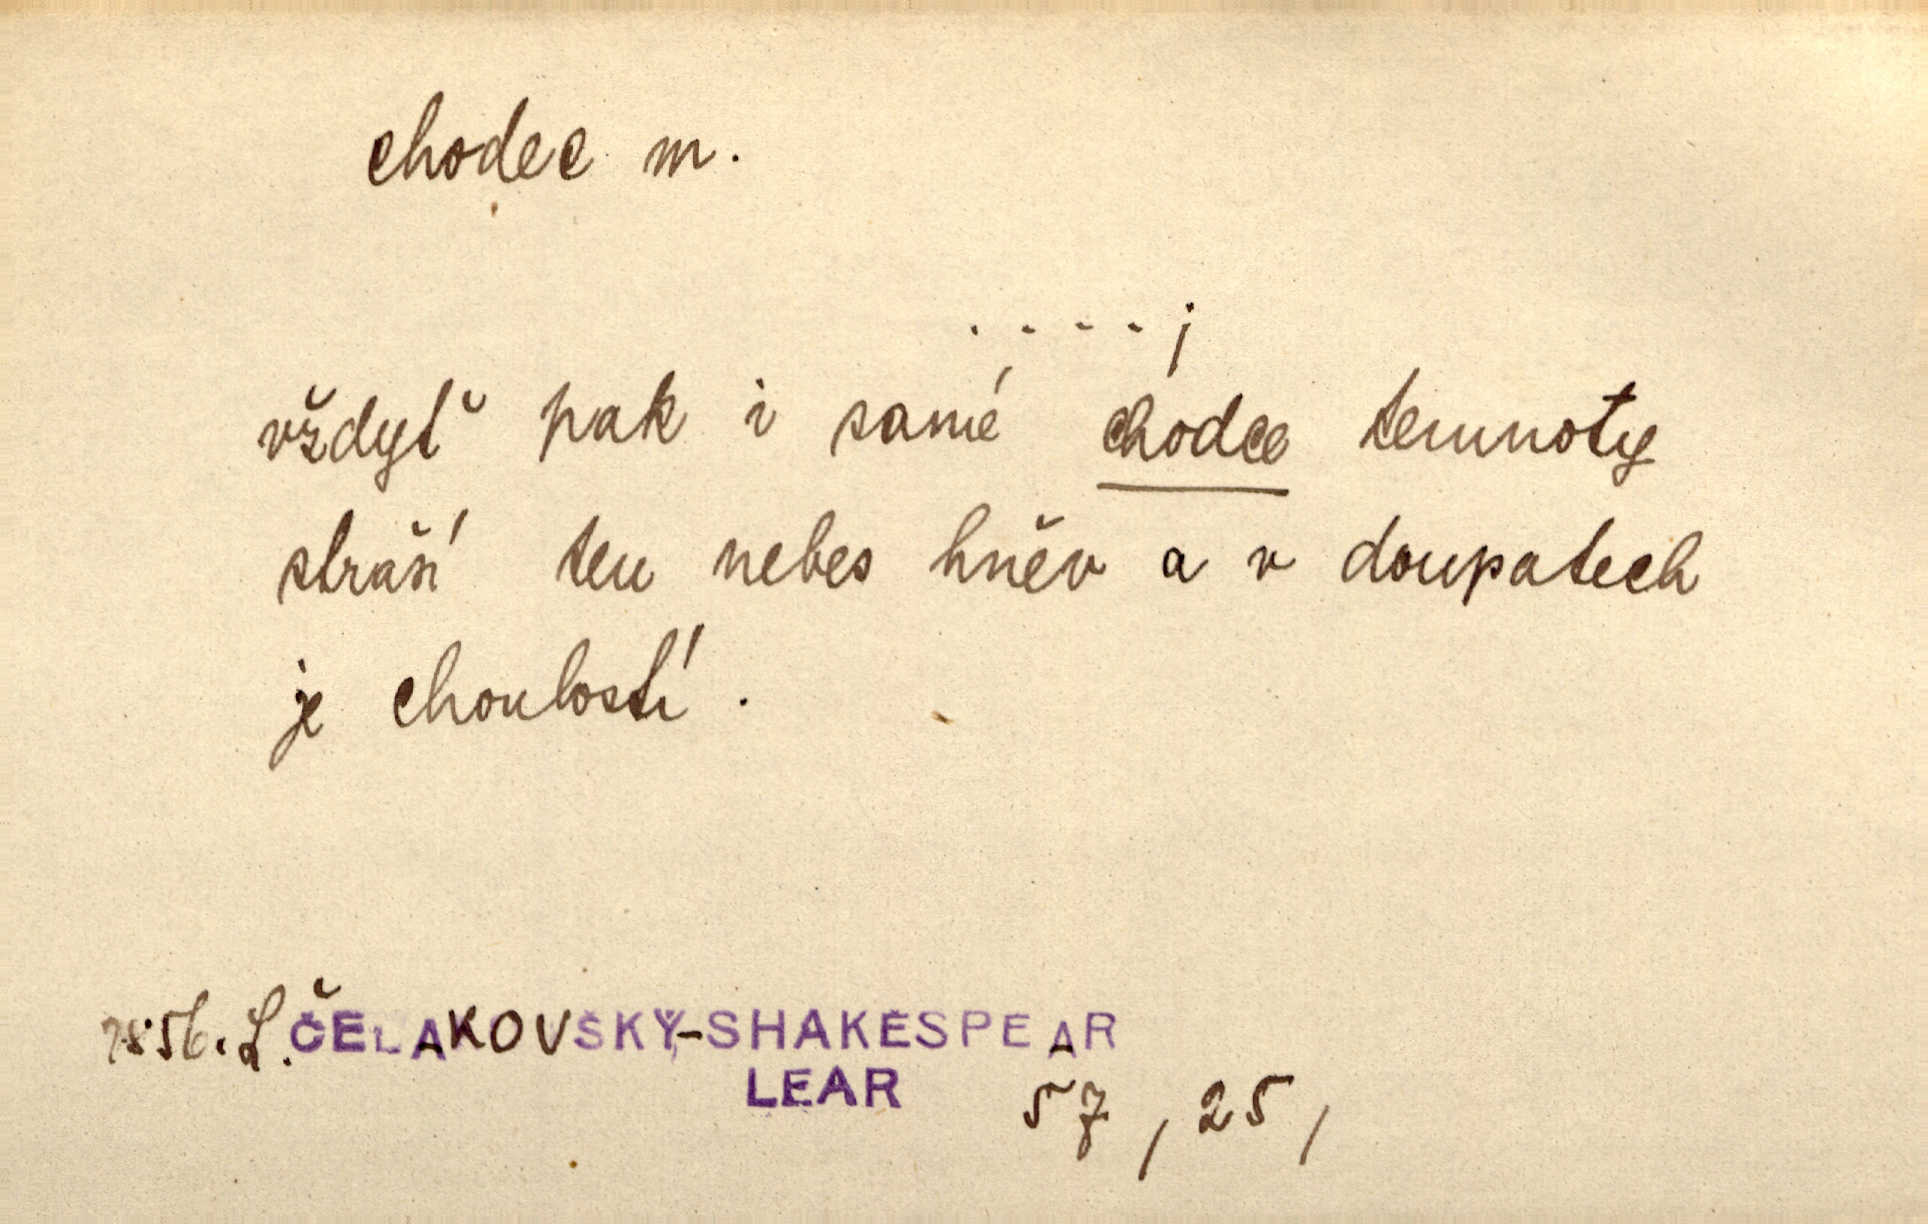 chodec m.
. . . . ;
vždyť pak i samé chodce temnoty
straší ten nebes hněv a v doupatech
je choulostí.
1856. L. ČELAKOVSKÝ-SHAKESPEAR
LEAR 57, 25,